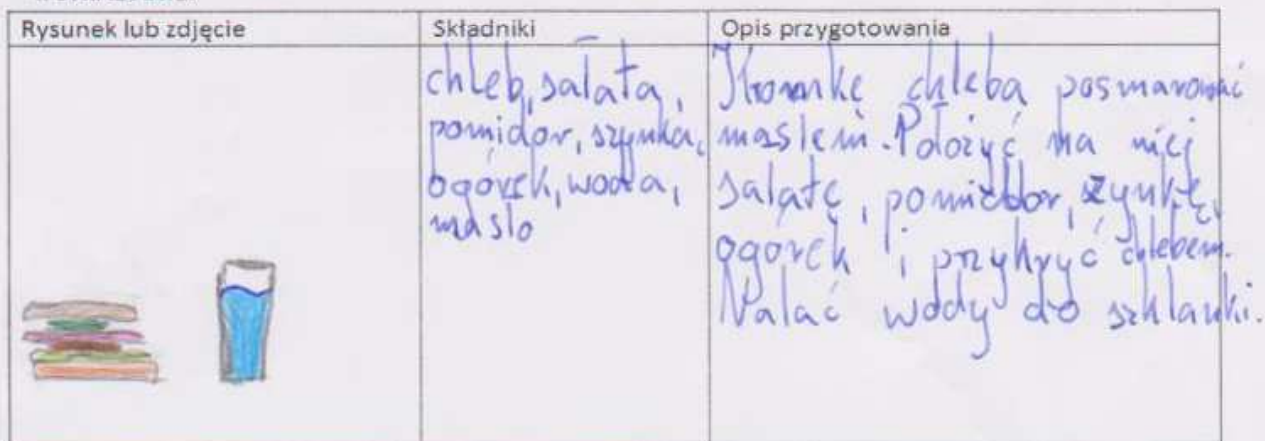 Rysunek lub zdjęcie
Składniki
Opis przygotowania
chleb, sałata,
pomidor, szynka,
ogórek, woda,
masło
Kromkę chleba posmarować
masłem. Położyć na niej
sałatę, pomidor, szynkę,
ogórek i przykryć chlebem.
Nalać wody do szklanki.